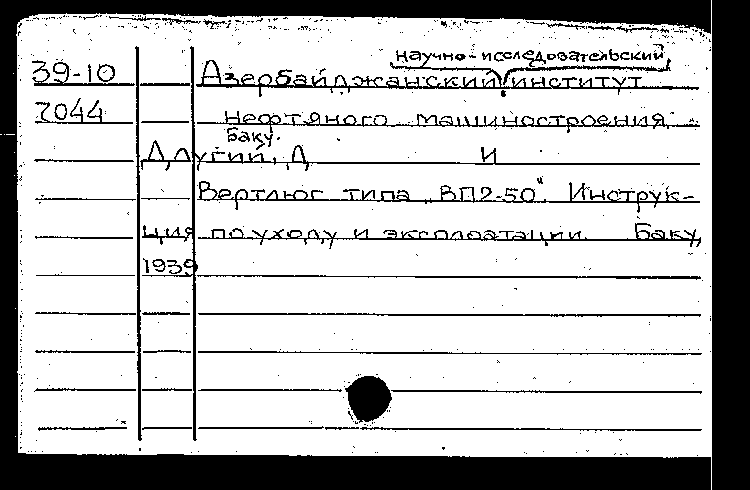 научно-исследовательский
39-10 Азербайджанский институт
7044 нефтяного машиностроения.
Баку.
Длугий, Д И
Вертлюг типа „ВП2-50". Инструк-
ция по уходу и эксплоатации. Баку,
1939